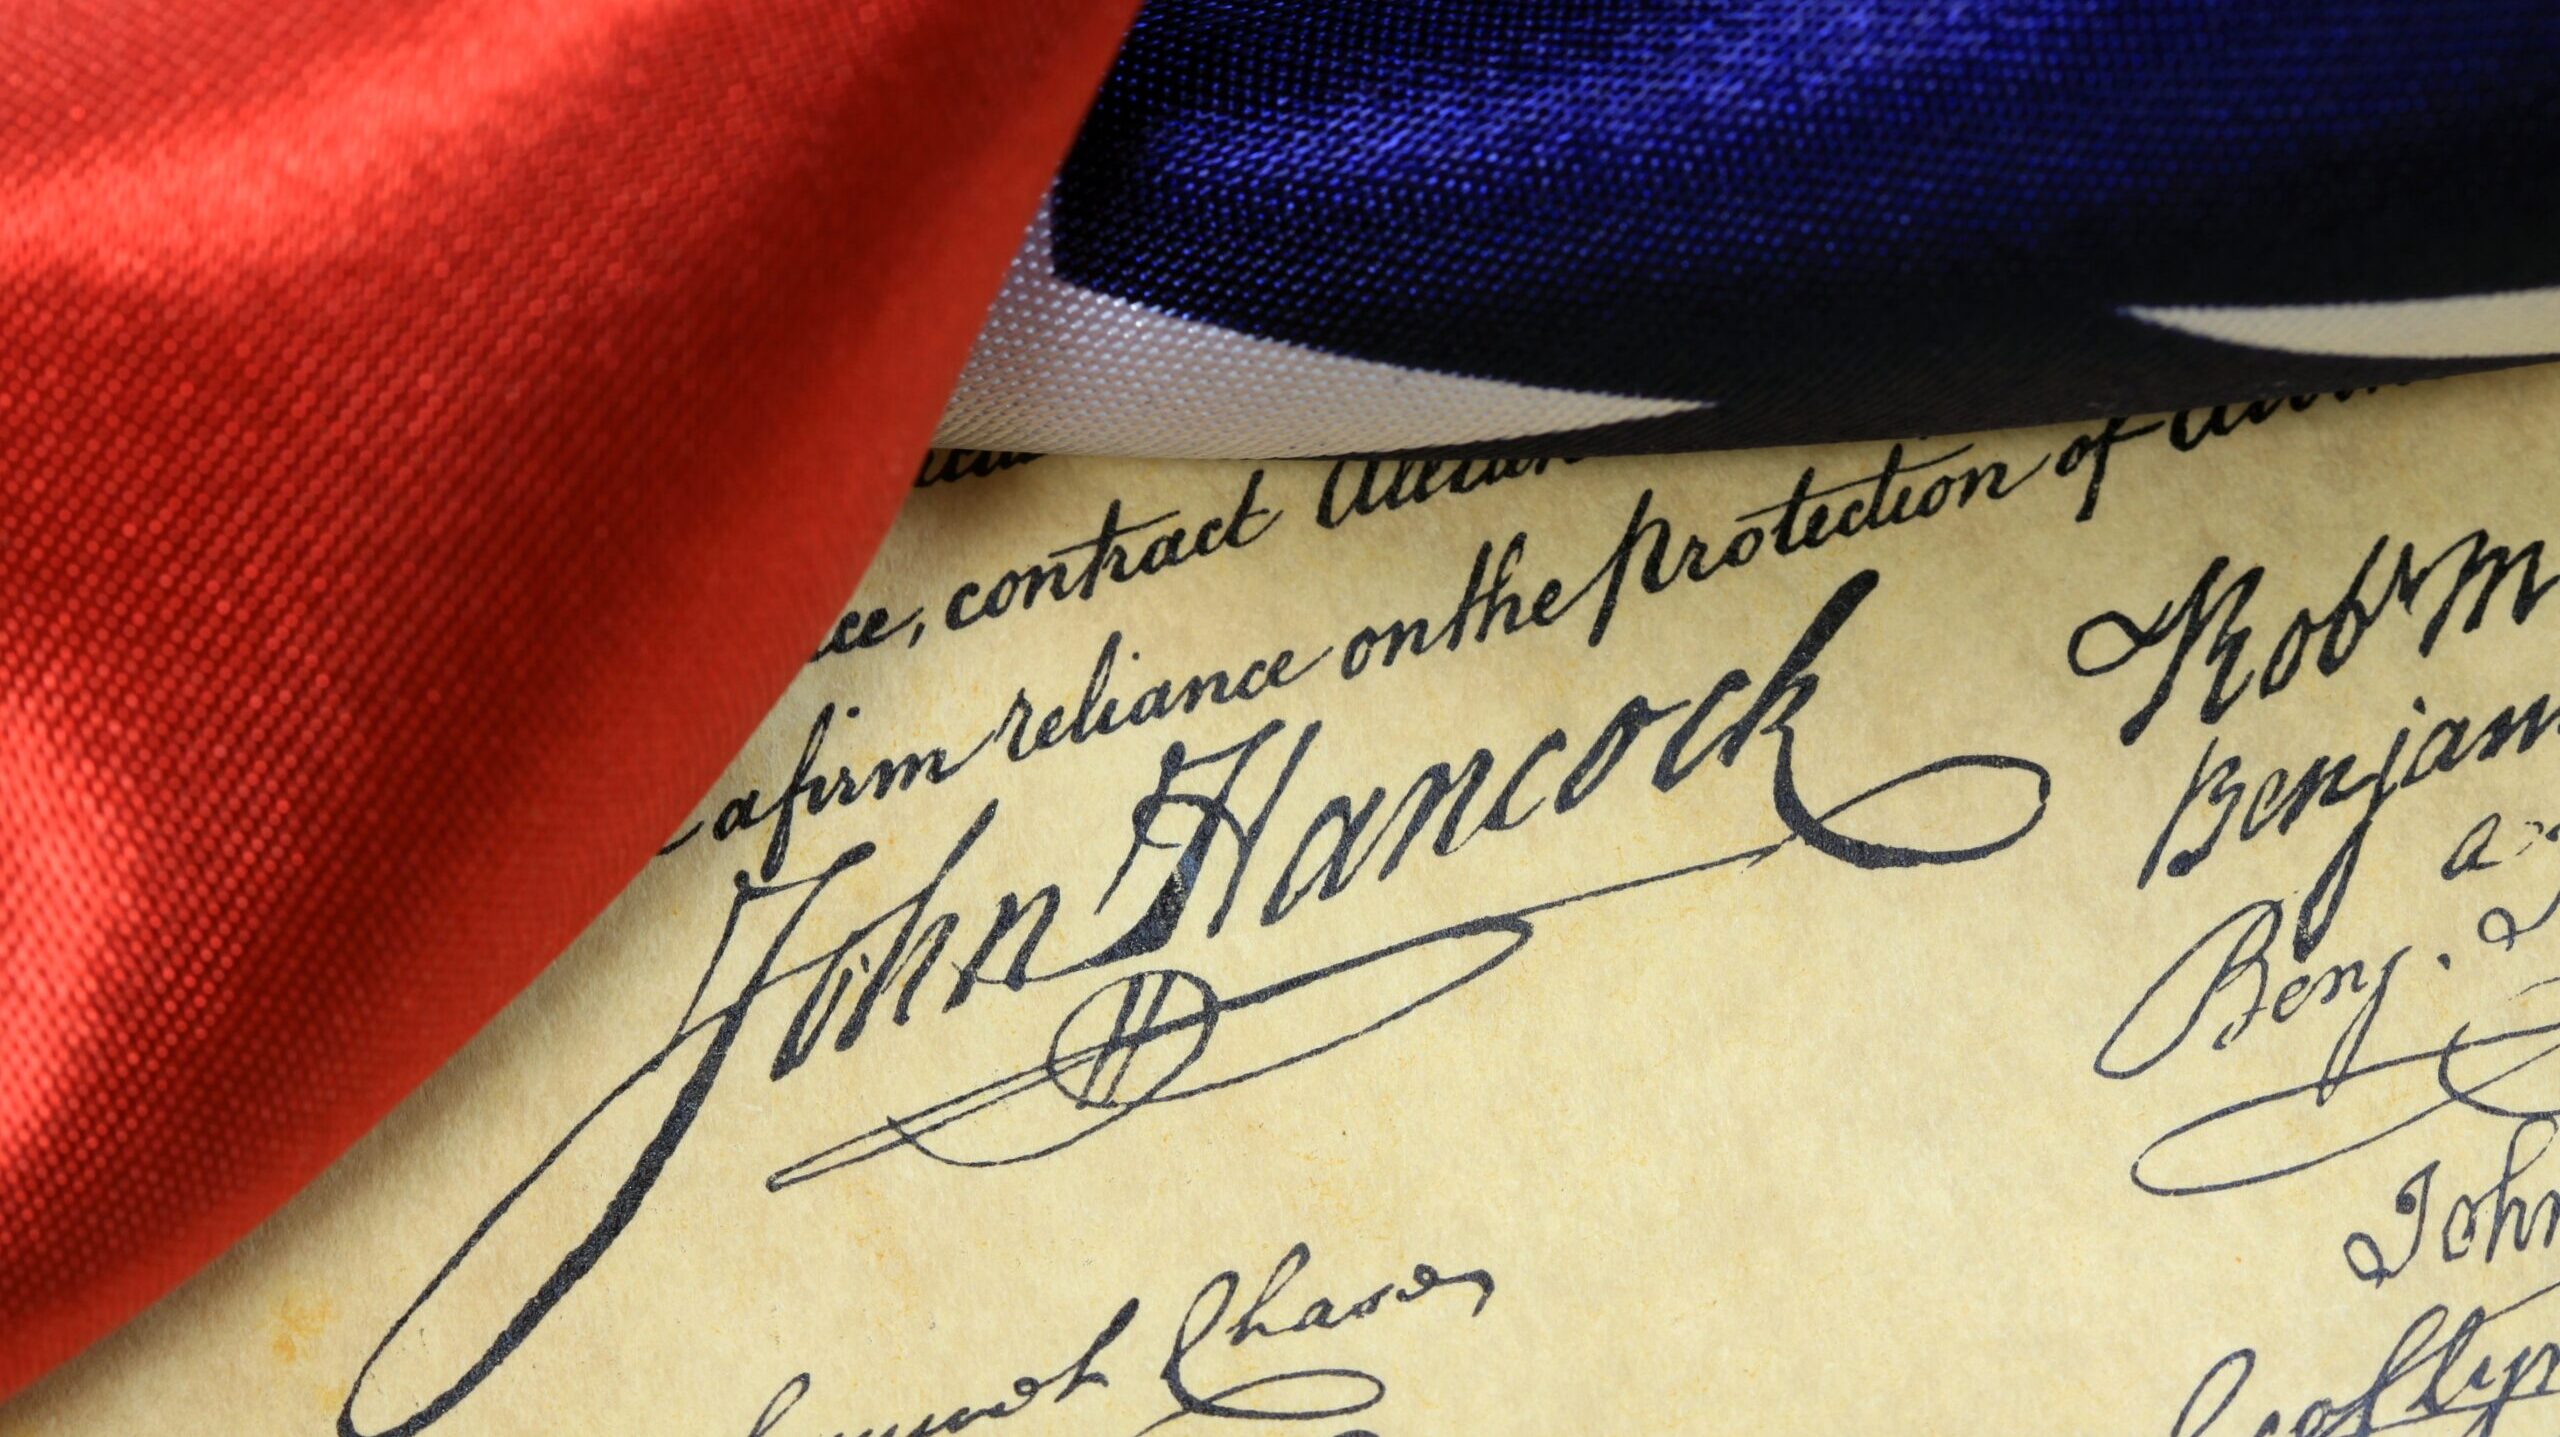 ce, contract
a firm reliance on the protection of
John Hancock
Robt M
Benjam
Benj.
John
Samuel Chase